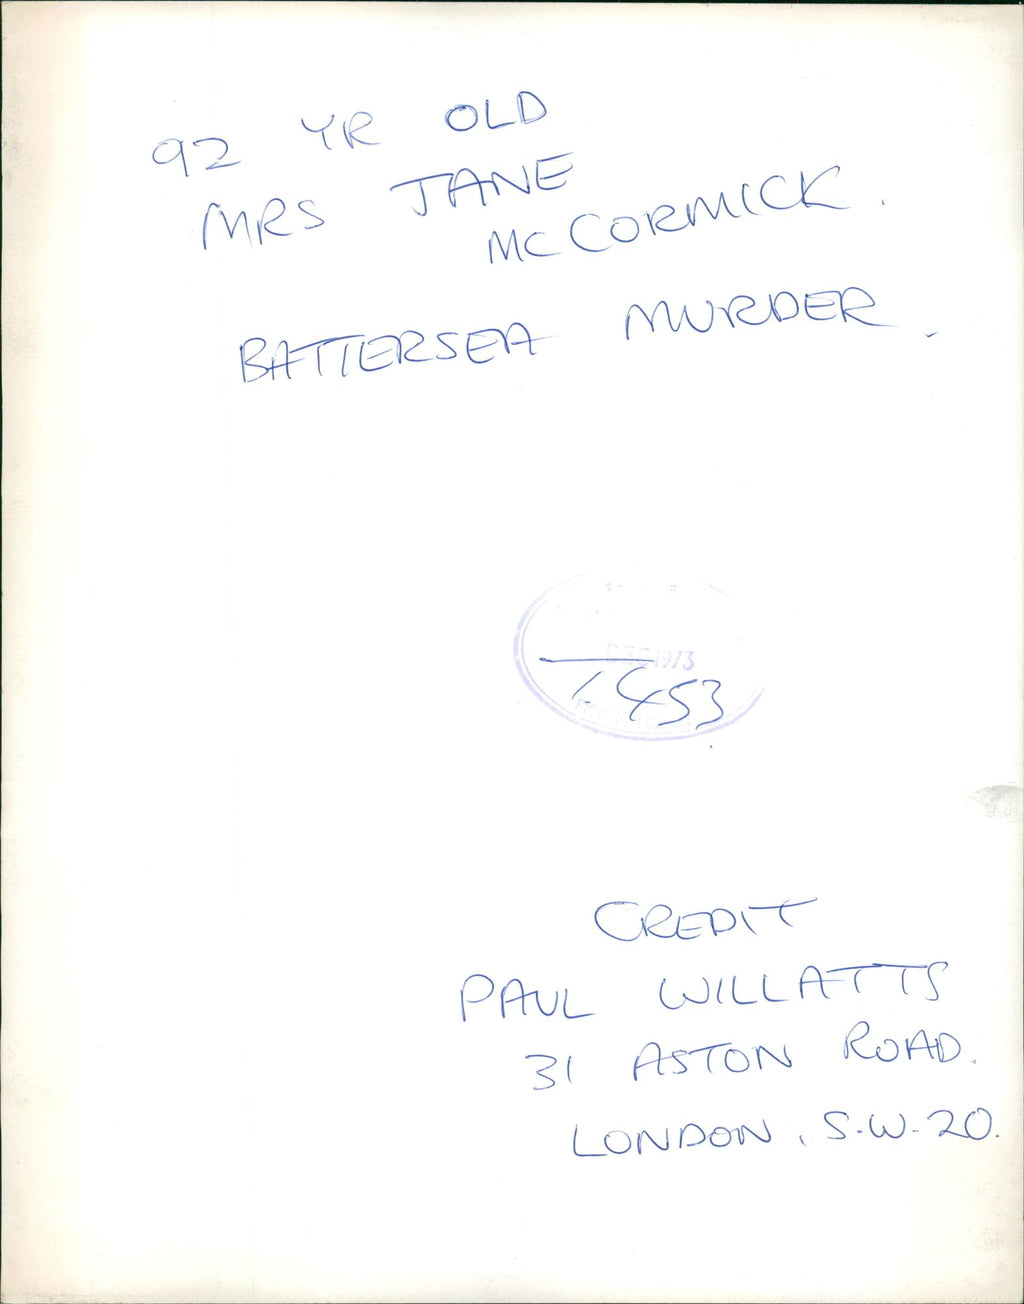 92 YR OLD
MRS JANE
MCCORMICK.
BATTERSEA MURDER.
DEC 1973
453
CREDIT
PAUL WILLATTS
31 ASTON ROAD.
LONDON, S.W.20.